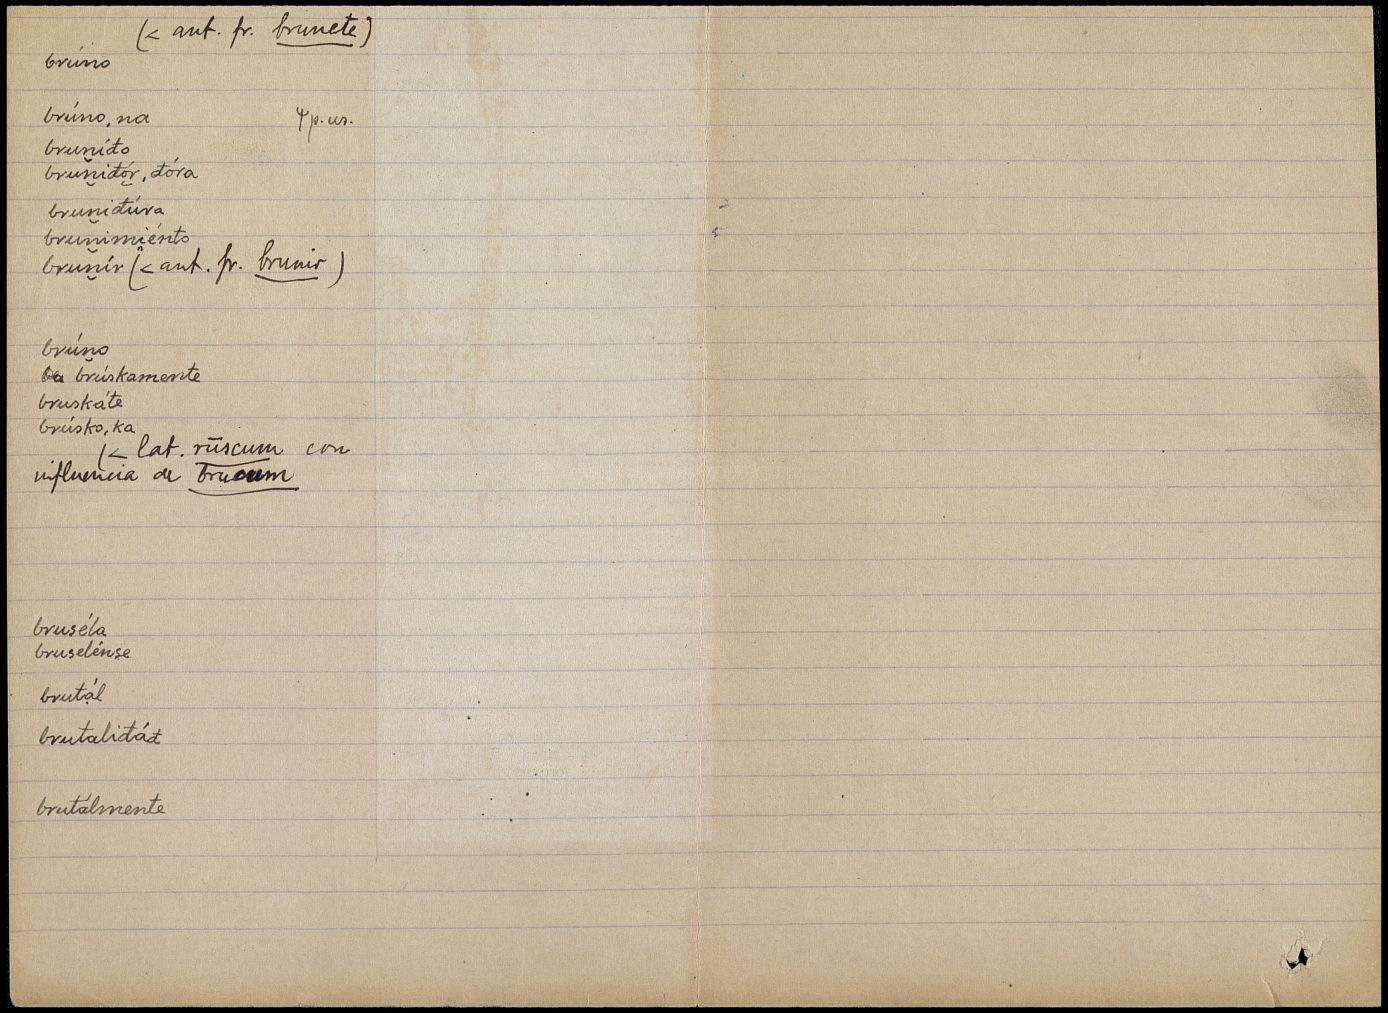 (< ant. fr. brunete)
brúno
brúno, na ψ p. us.
brun̮íđo
brun̮iđór̮, đóra
brun̮iđúra
brun̮imi̯énto
brun̮ír (< ant. fr. brunir)
brún̮o
brúskamente
bruskáte
brúsko, ka
(< lat. rūscum con
influencia de brucum
bruséla
bruselénse
brutál
brutaliđáđ
brutálmente